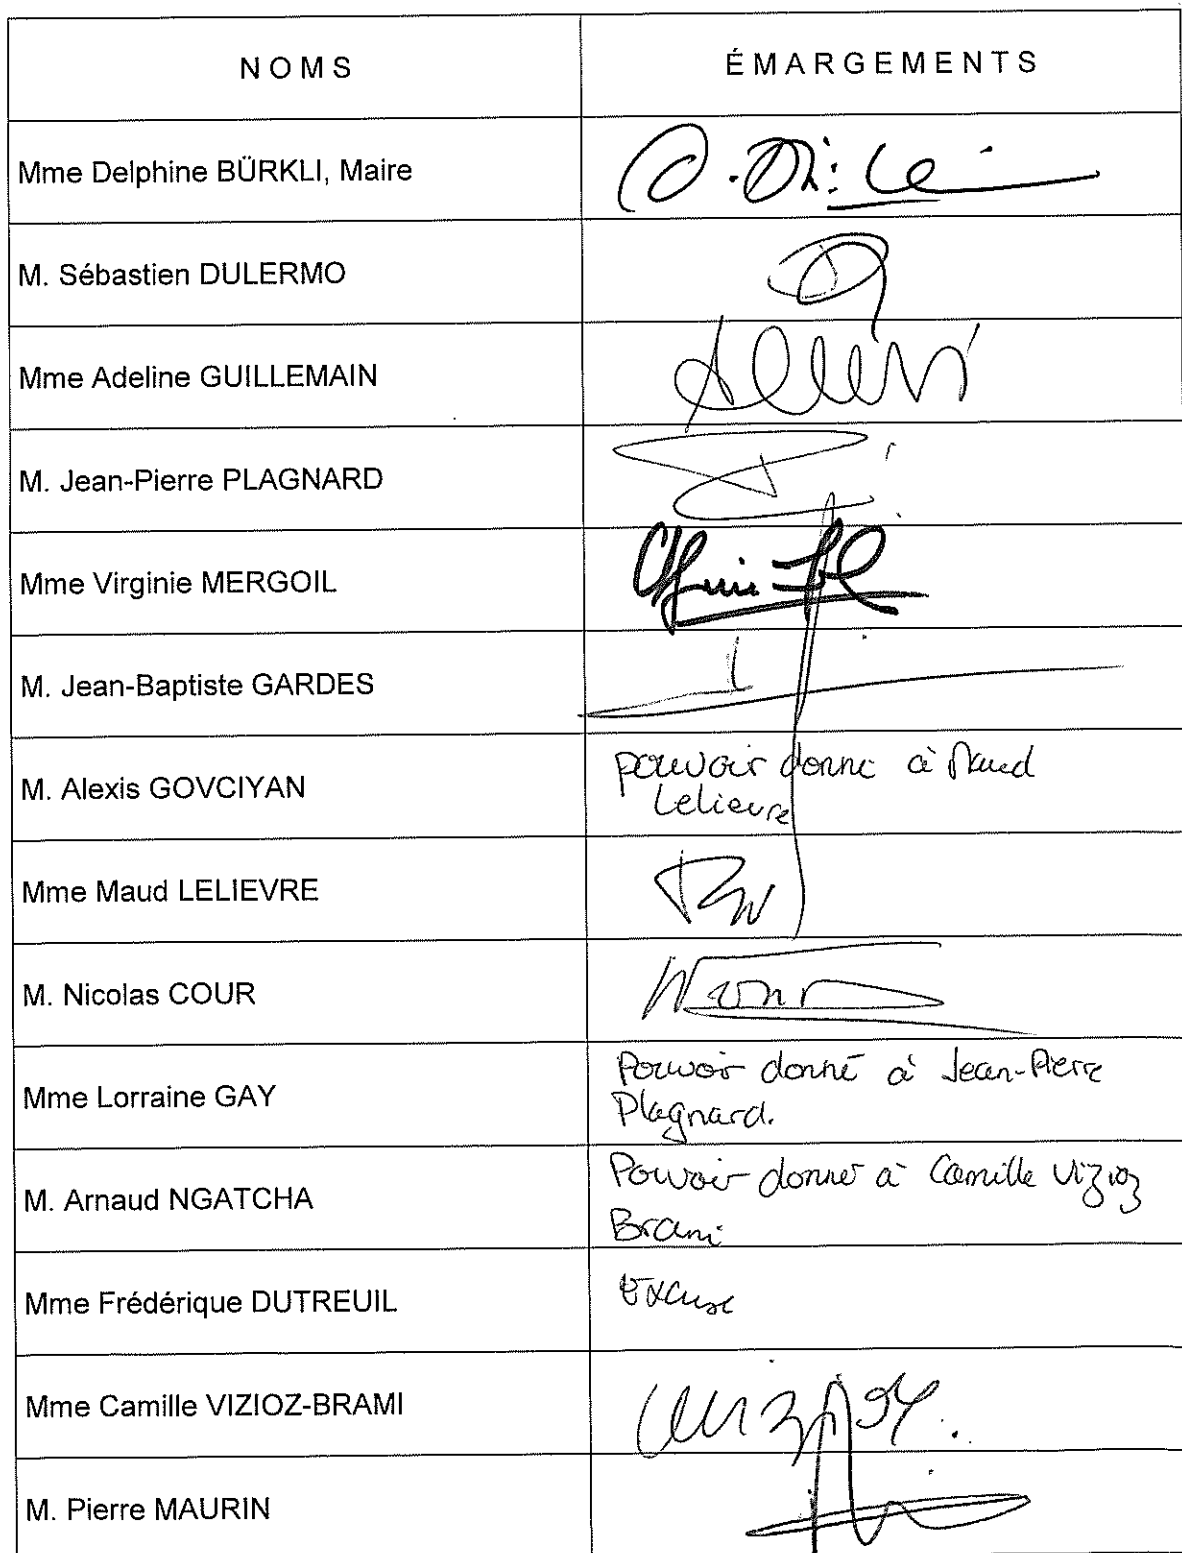 NOMS
ÉMARGEMENTS
Mme Delphine BÜRKLI, Maire
M. Sébastien DULERMO
Mme Adeline GUILLEMAIN
M. Jean-Pierre PLAGNARD
Mme Virginie MERGOIL
M. Jean-Baptiste GARDES
M. Alexis GOVCIYAN
pouvoir donné à Maud
Lelievre
Mme Maud LELIEVRE
M. Nicolas COUR
Mme Lorraine GAY
Pouvoir donné à Jean-Pierre
Plagnard.
M. Arnaud NGATCHA
Pouvoir donné à Camille Vizioz
Brami
Mme Frédérique DUTREUIL
Excusé
Mme Camille VIZIOZ-BRAMI
M. Pierre MAURIN